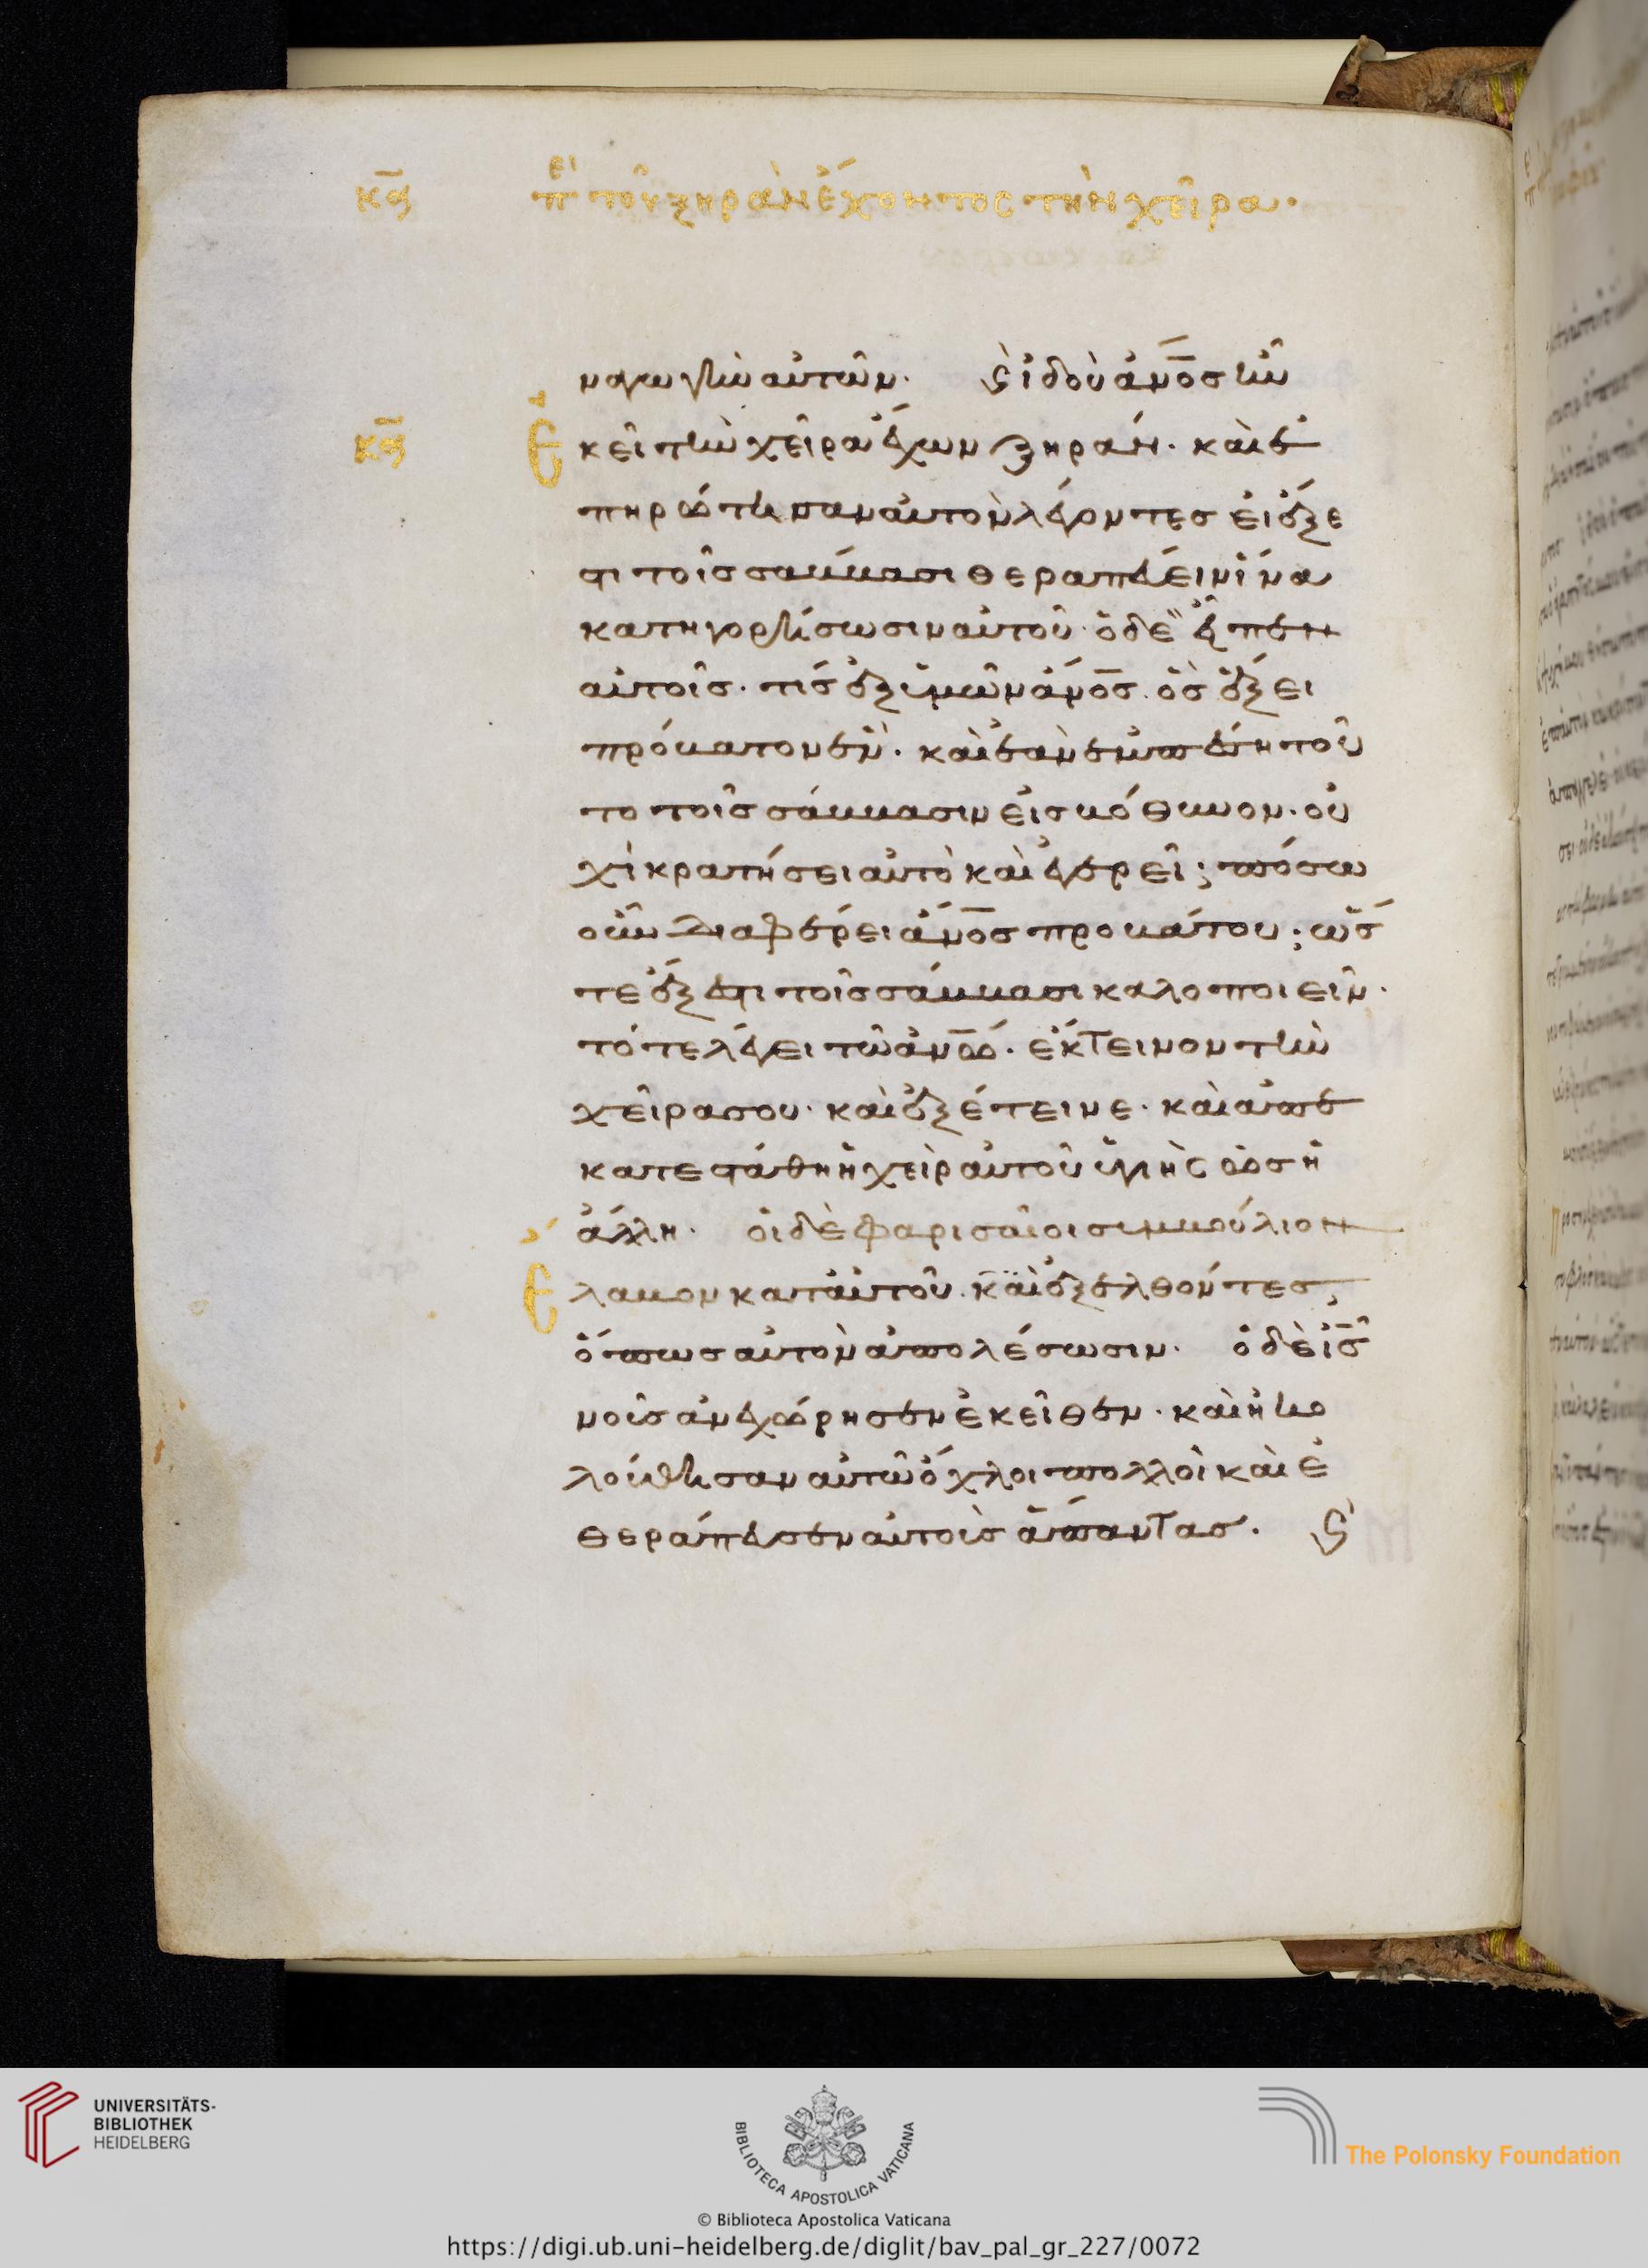 κα περὶ τοῦ ξηρὰν ἔχοντος τὴν χεῖρα·
ναγωγὴν αὐτῶν· ϗ ἰδοὺ ἄνος ἦν
κα Ε κεῖ τὴν χεῖρα ἔχων ξηράν· καὶ ἐ
πηρώτησαν αὐτὸν λέγοντες εἰ ἔξε
στι τοῖς σάββασι θεραπεύειν ἵνα
κατηγορήσωσιν αὐτοῦ· ὁ δὲ εἶπεν
αὐτοῖς· τίς ἐξ ὑμῶν ἄνος ὃς ἕξει
πρόβατον ἕν· καὶ ἐὰν ἐμπέση τοῦ
το τοῖς σάββασιν εἰς βόθυνον· οὐ
χὶ κρατήσει αὐτὸ καὶ ἐγερεῖ; πόσω
οὖν διαφέρει ἄνος προβάτου; ὥσ
τε ἔξεστι τοῖς σάββασι καλοποιεῖν·
τότε λέγει τῶ ἀνω· ἔκτεινον τὴν
χεῖρα σου· καὶ ἐξέτεινε· καὶ ἀπε
κατεστάθη ἡ χεὶρ αὐτοῦ ὑγιὴς ὡς ἡ
ἄλλη· οἱ δὲ φαρισαῖοι συμβούλιον
Ε λαβον κατ αὐτοῦ· καὶ ἐξελθόντες
ὅπως αὐτὸν ἀπολέσωσιν· ὁ δὲ ις
νοὺς ἀνεχώρησεν ἐκεῖθεν· καὶ ἠκο
λούθησαν αὐτῶ ὄχλοι πολλοὶ καὶ ἐ
θεράπευσεν αὐτοὺς ἅπαντας· ϗ
UNIVERSITÄTS-
BIBLIOTHEK
HEIDELBERG
BIBLIOTECA APOSTOLICA VATICANA
The Polonsky Foundation
© Biblioteca Apostolica Vaticana
https://digi.ub.uni-heidelberg.de/diglit/bav_pal_gr_227/0072